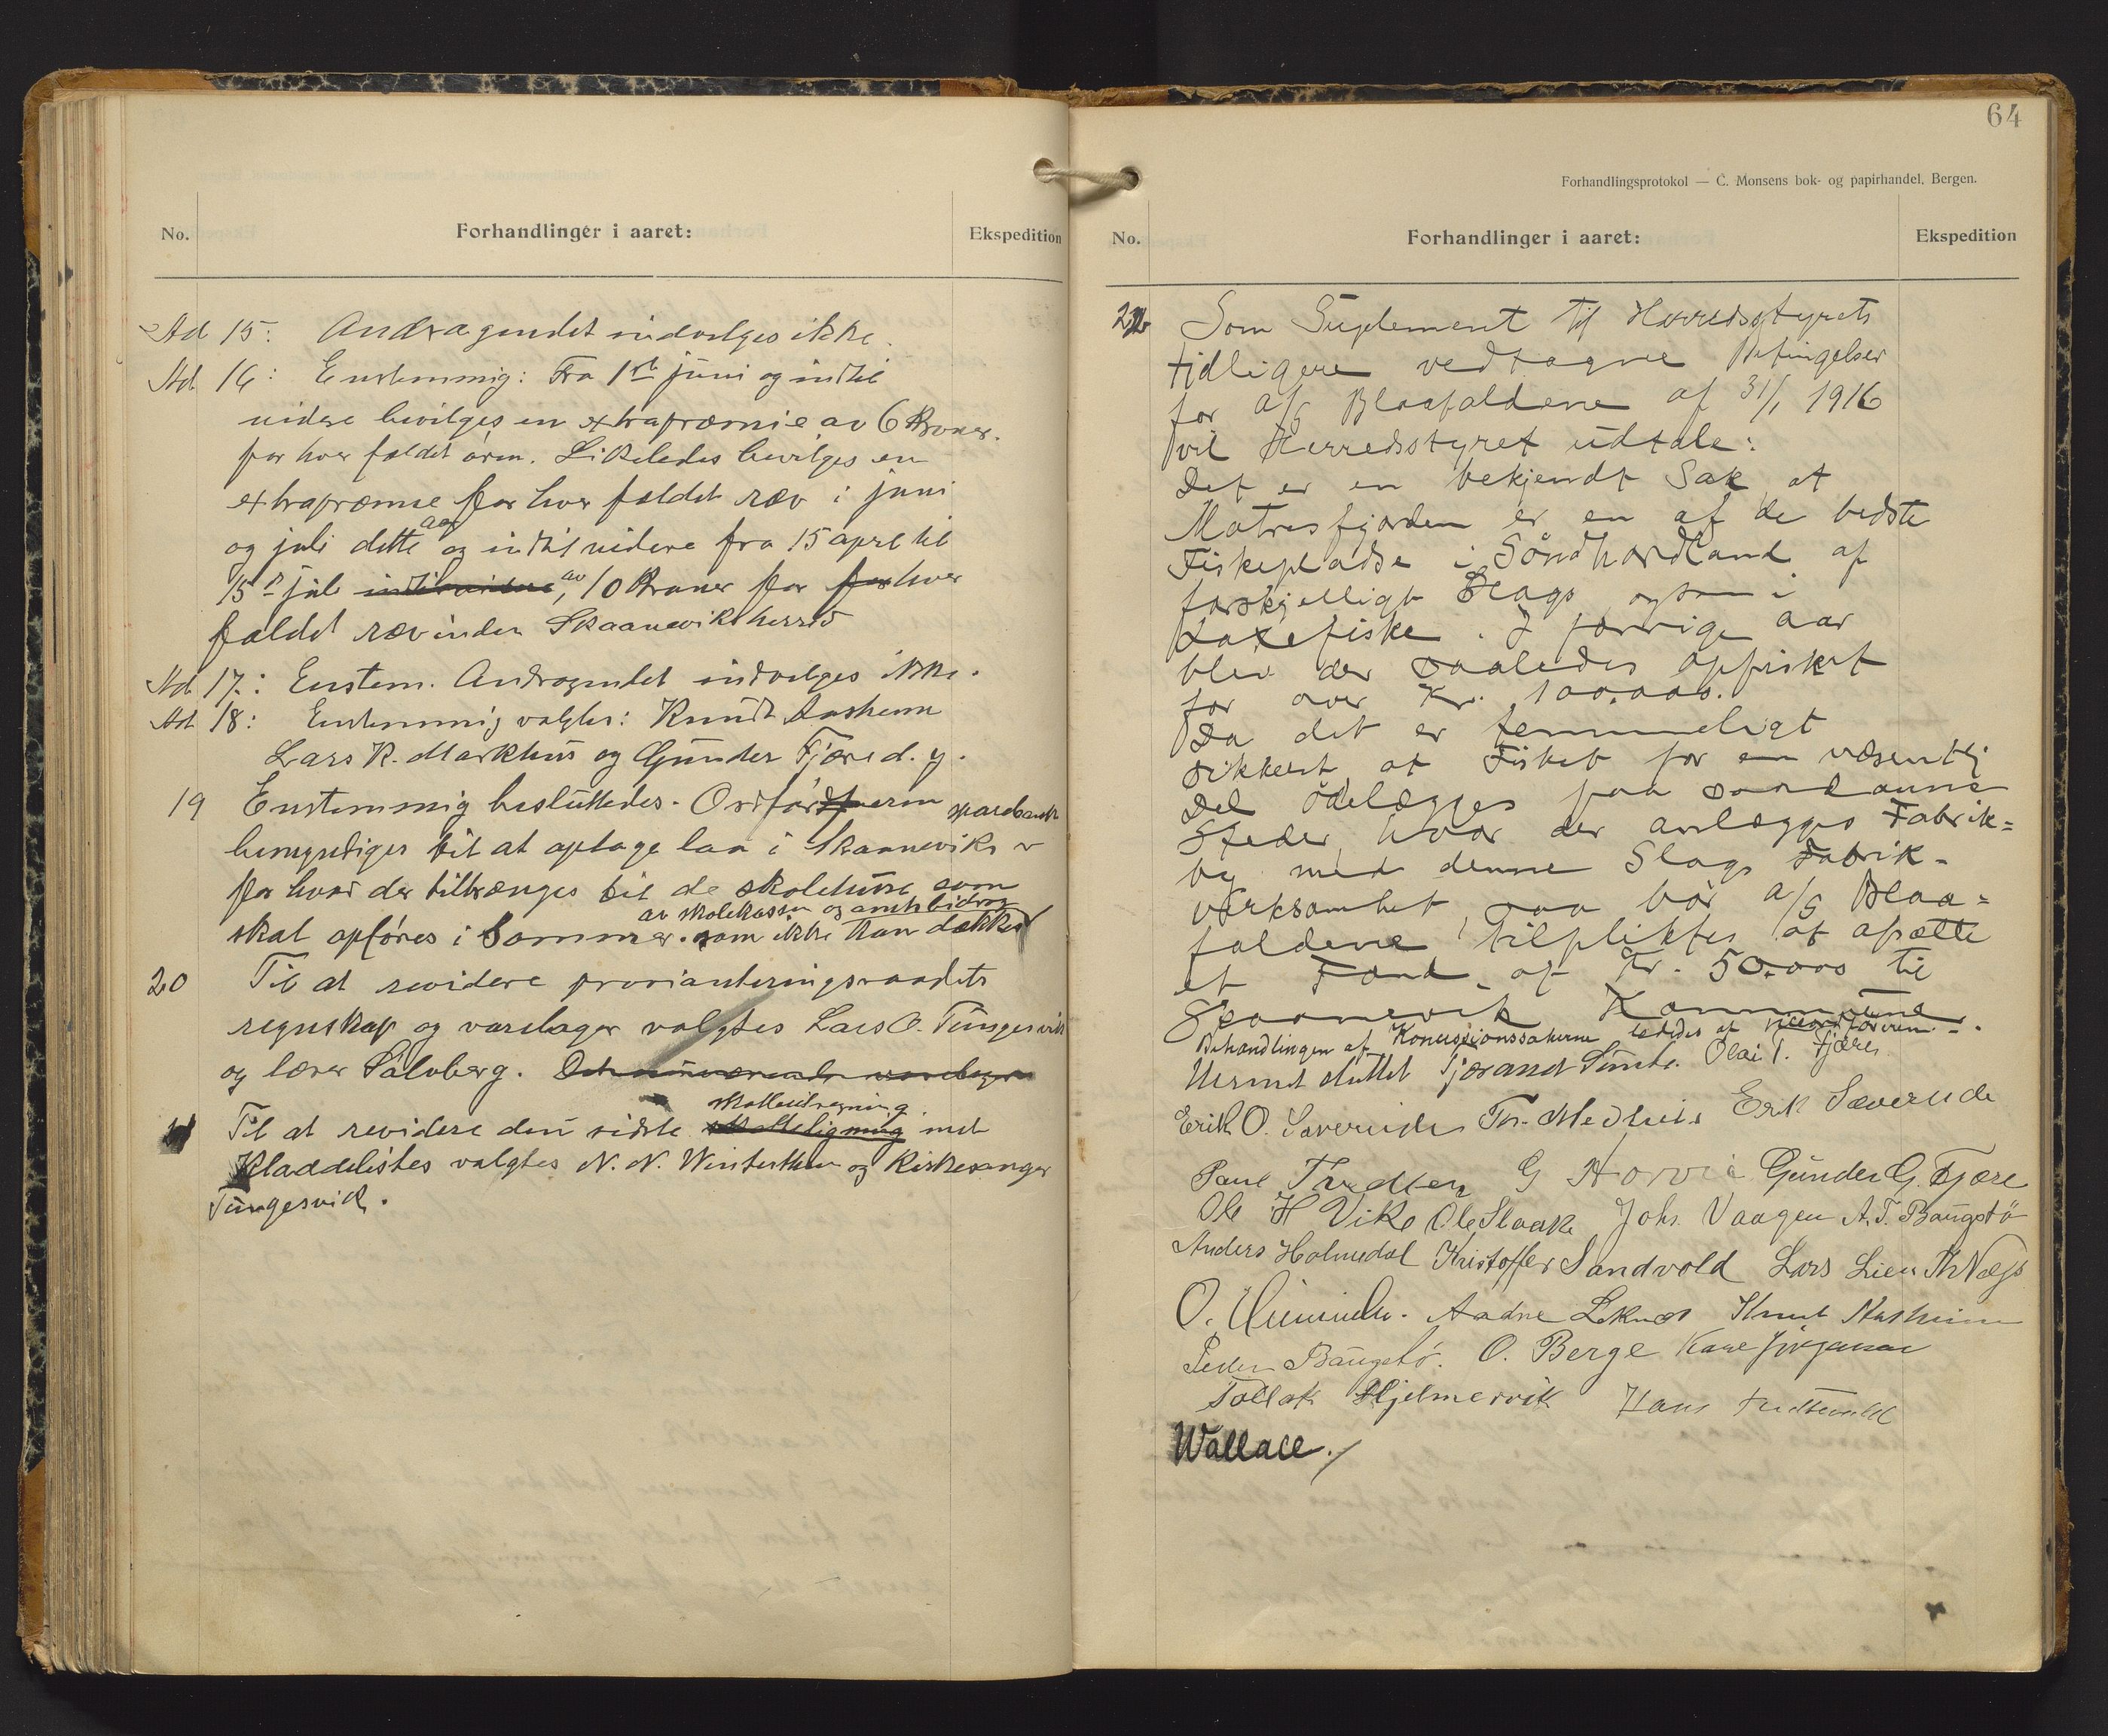 No.
Forhandlinger i aaret:
Ekspedition
Ad 15: Andragendet indvilges ikke.
Ad 16: Enstemmig: Fra 1ste juni og indtil
videre bevilges en extrapræmie av 6 Kroner
for hver fældet ørn. Likeledes bevilges en
extrapræmie for hver fældet ræv i juni
og juli dette aar og indtil videre fra 15 april til
15de juli indtil videre, av 10 Kroner for for hver
fældet ræv inden Skaanevik herred
Ad 17: Enstem. Andragendet indvilges ikke.
Ad 18: Enstemmig valgtes: Knudt Aasheim
Lars K. Markhus og Gunder Fjære d. y.
19 Enstemmig besluttedes. Ordføreren
bemyndiges til at optage laan i Skaaneviks sparebank
for hvad der tiltrænges til de skolehuse som
skal opføres i Sommer. som ikke kan dækkes
av skolekassen og amtsbidrag
20 Til at revidere provianteringsraadets
regnskap og varelager valgtes Lars O. Tungesvik
og lærer Salvberg. Det nuværende varelager
21 Til at revidere den sidste skatteligning skatteutregning med
Kladdelistes valgtes N. N. Winterthun og Kirkesanger
Tungesvik.
64
Forhandlingsprotokol — C. Monsens bok- og papirhandel, Bergen.
No.
Forhandlinger i aaret:
Ekspedition
22 Som Suplement til Herredsstyrets
tidligere vedtagne Betingelser
for a/s Blaafaldene af 31/1 1916
vil Herredsstyret udtale:
Det er en bekjendt Sak at
Matresfjorden er en af de bedste
Fiskepladse i Söndhordland af
forskjelligt Slags, ogsaa i
Laxefiske. I forrige aar
blev der saaledes opfisket
for over Kr. 100.000.
Da det er temmeligt
sikkert at Fisket for en væsentlig
Del ödelægges paa saadanne
Steder, hvor der anlægges Fabrik=
by med denne Slags Fabrik-
virksomhet, saa bör a/s Blaa=
faldene tilpliktes at afsætte
et Fond af Kr. 50.000 til
Skaanevik Kommune.
Behandlingen af Koncessjonssakerne lededes af viceordföreren.
Hermed sluttet Tjerand Sunde. Olai T. Fjære
Erik O. Sæverude Th. Medhus Erik Sæverude
Paul Tredten G Horvei Gunder G. Fjære
Ole H Vike Ole Slaake Johs. Vaagen A. T. Baugstø
Anders Holmedal Kristoffer Sandvold Lars Lien
O. Aadne Knut Aasheim
Peder Baugstø. O. Berge Kane Jörgensen
Tollak Hjelmervik Hans
Wallace.